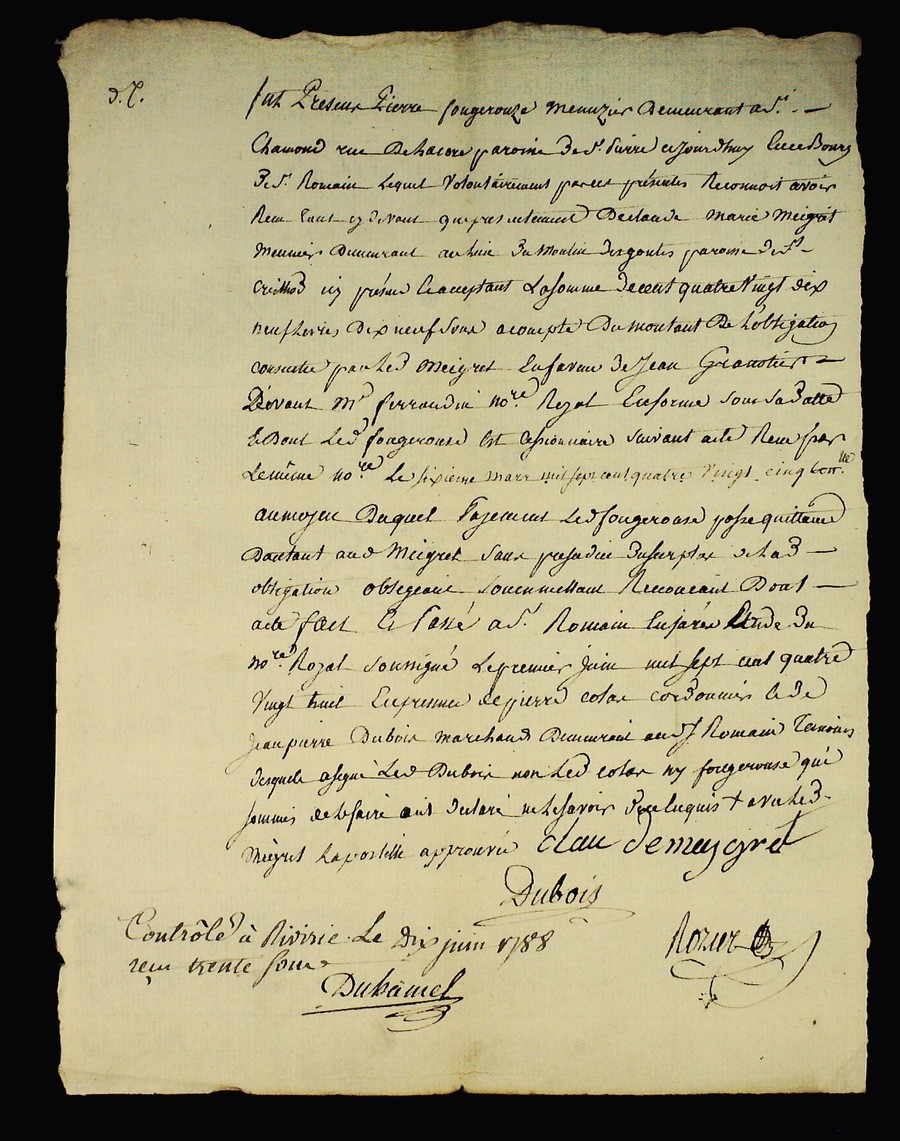 d. t.
fut Présent Pierre fougerouze Menuzier Demeurant a St. —
Chamond rue De paroisse De St. Pierre cejourdhuy Ence Bourg
De St. Romain Lequel Volontairement par ces présentes Reconnoit avoir
Recu tant cy devant que presentement De Claude Marie Meigret
Meunier Demeurant au lieu Du Moulin Des goutes paroisse De St. —
icy présent Et acceptant La somme De cent quatre Vingt dix
neuf Livres, Dix neuf Sous a compte Du montant De L'obligation
consentie par Led Meigret En faveur De Jean —
Devant Me ferraudin nore. Royal En forme sous sa Datte
Et Dont Led fougerouse Est Cessionnaire suivant acte Recu par
Le même nore. Le sixieme mars mil sept cent quatre Vingt cinq
au moyen Duquel Payement Led fougerouse passe quittance
D'autant aud Meigret sans prejudice Du surplus De Lad —
obligation obligeant soummettant Renoncant Dont —
acte fait Et Passé a St. Romain Etude Du
nore. Royal soussigné Le premier juin mil sept cent quatre
Vingt huit En presence de pierre colas cordonnier Et De
Jean pierre Dubois marchand Demeurant aud St Romain Temoins
Desquels a signé Led Dubois non Led colas ny fougerouse qui
sommés de le faire ont declaré ne le savoir De ce Enquis + avec Led.
Meigret La postille approuvée claude maigret
Dubois
Contrôlé à Riverie Le Dix juin 1788
Rozier
reçu trente sous
Duhamel